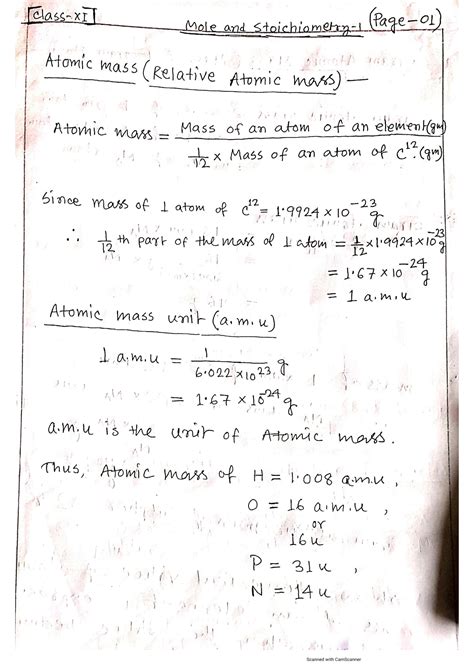 Class-XI
Mole and Stoichiometry-1 (Page-01)
Atomic mass (Relative Atomic mass) —
Atomic mass = Mass of an atom of an element(gm)
1/12 × Mass of an atom of C¹². (gm)
Since mass of 1 atom of C¹² = 1.9924 × 10⁻²³ g
∴ 1/12 th part of the mass of 1 atom = 1/12 × 1.9924 × 10⁻²³ g
= 1.67 × 10⁻²⁴ g
= 1 a.m.u
Atomic mass unit (a.m.u)
1 a.m.u = 1/6.022 × 10²³ g
= 1.67 × 10⁻²⁴ g
a.m.u is the unit of Atomic mass.
Thus, Atomic mass of H = 1.008 a.m.u,
O = 16 a.m.u,
or
16u
P = 31u,
N = 14u
Scanned with CamScanner